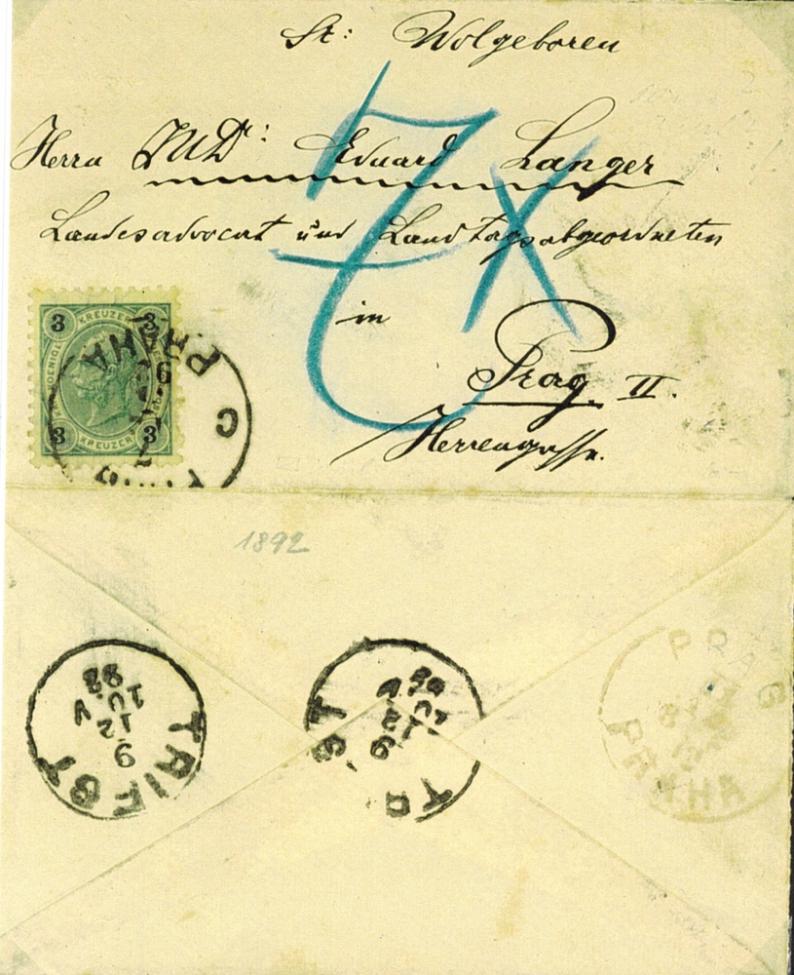 Sr: Wolgeboren
Herrn JUDr: Eduard Langer
Landesadvocat und Landtagsabgeordneten
in
Prag II.
Herrengasse.
7x
3 KREUZER 3
3 KREUZER 3
PRAHA
C
1892
TRIEST
9
12
10.V
92
T ST
9
12
10.V
92
PRAG
PRAHA